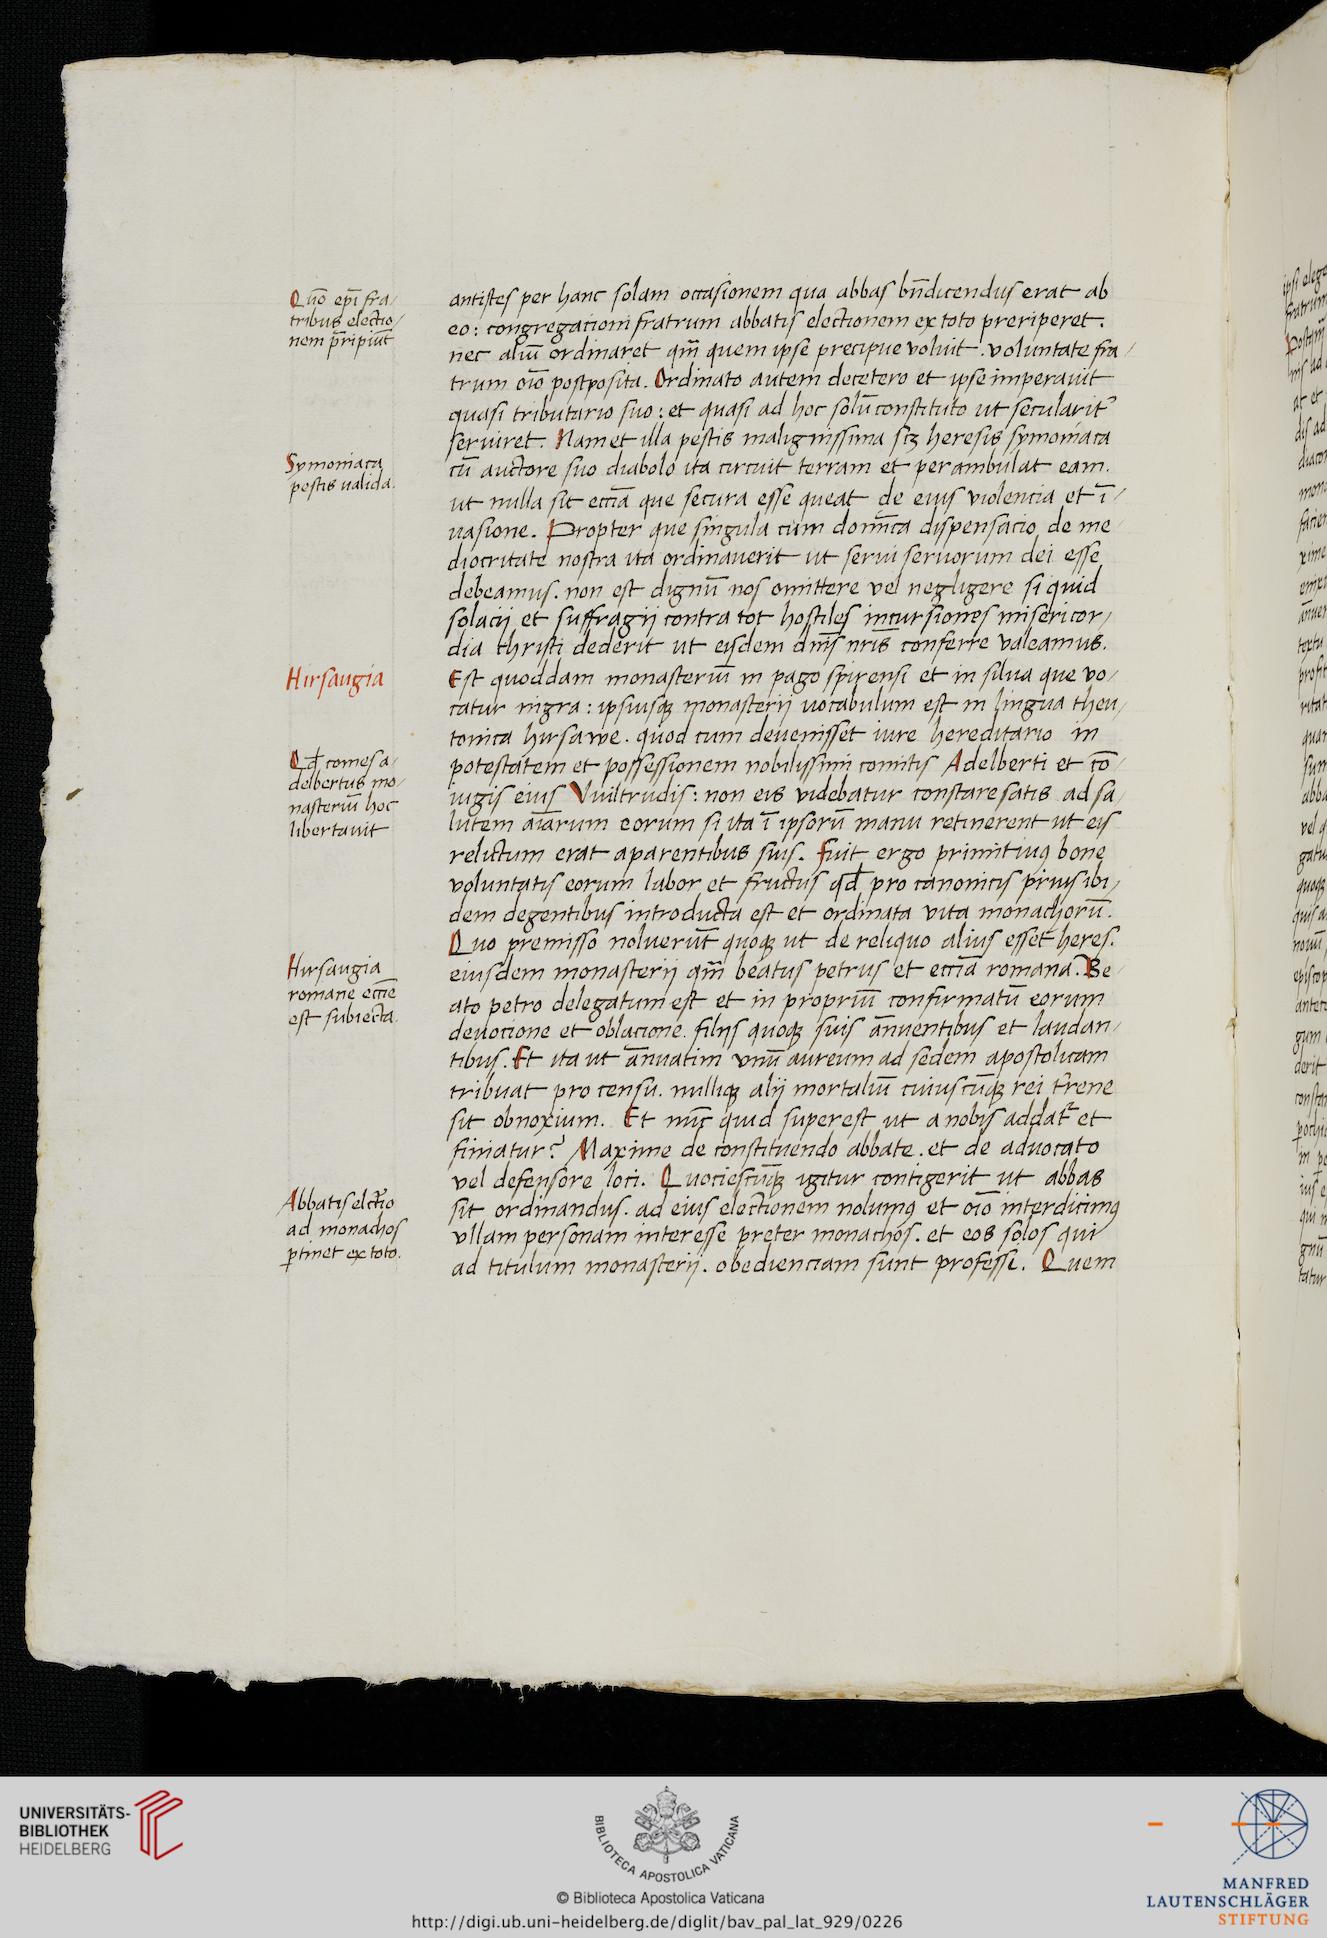 Quō ep̄i fra/
tribus electio/
nem p̄ripiūt
antistes per hanc solam occasionem qua abbas bn̄dicendus erat ab
eo: congregacioni fratrum abbatis electionem ex toto preriperet.
nec aliū ordinaret qm̄ quem ipse precipue voluit. voluntate fra/
trum oīo postposita. Ordinato autem decetero et ipse imperauit
quasi tributario suo: et quasi ad hoc solū constituto ut seculariter
seruiret. Nam et illa pestis malignissima scꝫ heresis symoniaca
Symoniaca
pestis ualida.
cū auctore suo diabolo ita circuit terram et perambulat eam.
ut nulla sit eccīa que secura esse queat de eius violencia et ī/
uasione. Propter que singula cum domīca dispensacio de me/
diocritate nostra ita ordinauerit ut serui seruorum dei esse
debeamus. non est dignū nos omittere vel negligere si quid
solacij et suffragij contra tot hostiles incursiones misericor/
dia christi dederit ut eisdem dn̄is nr̄is conferre valeamus.
Hirsaugia
Est quoddam monasteriū in pago spirensi et in silua que vo/
catur nigra: ipsiusqꝫ monasterij uocabulum est in lingua theu/
tonica hirsawe. quod cum deuenisset iure hereditario in
Qd̄ comes a/
delbertus mo/
nasteriū hoc
libertauit
potestatem et possessionem nobilissimi comitis Adelberti et cō/
iugis eius Vuiltrudis: non eis videbatur constare satis ad sa/
lutem aīarum eorum si ita ī ipsorū manu retinerent ut eis
relictum erat a parentibus suis. Fuit ergo primitiuꝰ bone
voluntatis eorum labor et fructus qd̄ pro canonicis prius ibi/
dem degentibus introducta est et ordinata vita monachorū.
Quo premisso noluerūt quoqꝫ ut de reliquo alius esset heres.
Hirsaugia
romane eccīe
est subiecta.
eiusdem monasterij qm̄ beatus petrus et eccīa romana. Be/
ato petro delegatum est et in propriū confirmatū eorum
deuocione et oblacione. filijs quoqꝫ suis ānuentibus et laudan/
tibus. Et ita ut ānuatim vnū aureum ad sedem apostolicam
tribuat pro censu. nulliqꝫ alij mortaliū cuiuscūqꝫ rei t̄rene
sit obnoxium. Et nūc quid superest ut a nobis addat̄ et
finiatur? Maxime de constituendo abbate. et de aduocato
vel defensore loci. Quociescūqꝫ igitur contigerit ut abbas
Abbatis elc̄tio
ad monachos
ꝑtinet ex toto.
sit ordinandus. ad eius electionem nolumꝰ et oīo interdicimꝰ
vllam personam interesse preter monachos. et eos solos qui
ad titulum monasterij. obedienciam sunt professi. Quem
UNIVERSITÄTS-
BIBLIOTHEK
HEIDELBERG
BIBLIOTECA APOSTOLICA VATICANA
© Biblioteca Apostolica Vaticana
http://digi.ub.uni-heidelberg.de/diglit/bav_pal_lat_929/0226
MANFRED
LAUTENSCHLÄGER
STIFTUNG